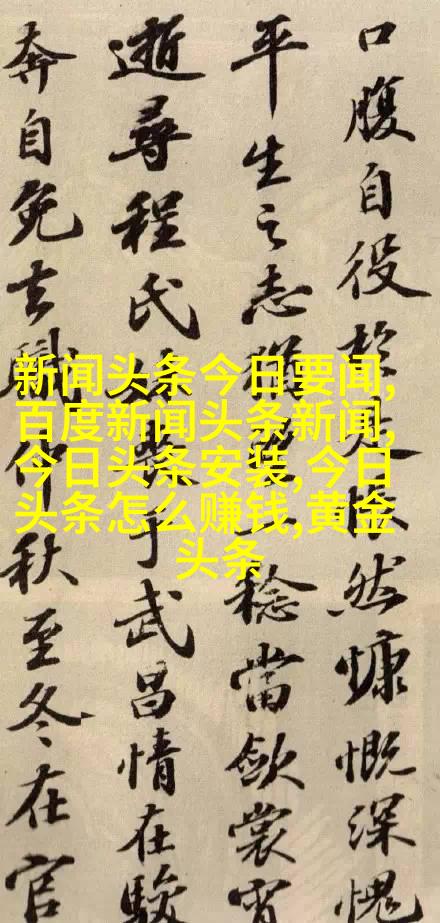 口腹自役於是悵然慷慨深愧
平生之志猶望一稔當斂裳宵
逝尋程氏妹喪于武昌情在駿
奔自免去職仲秋至冬在官
新闻头条今日要闻,
百度新闻头条新闻,
今日头条安装,今日
头条怎么赚钱,黄金
头条